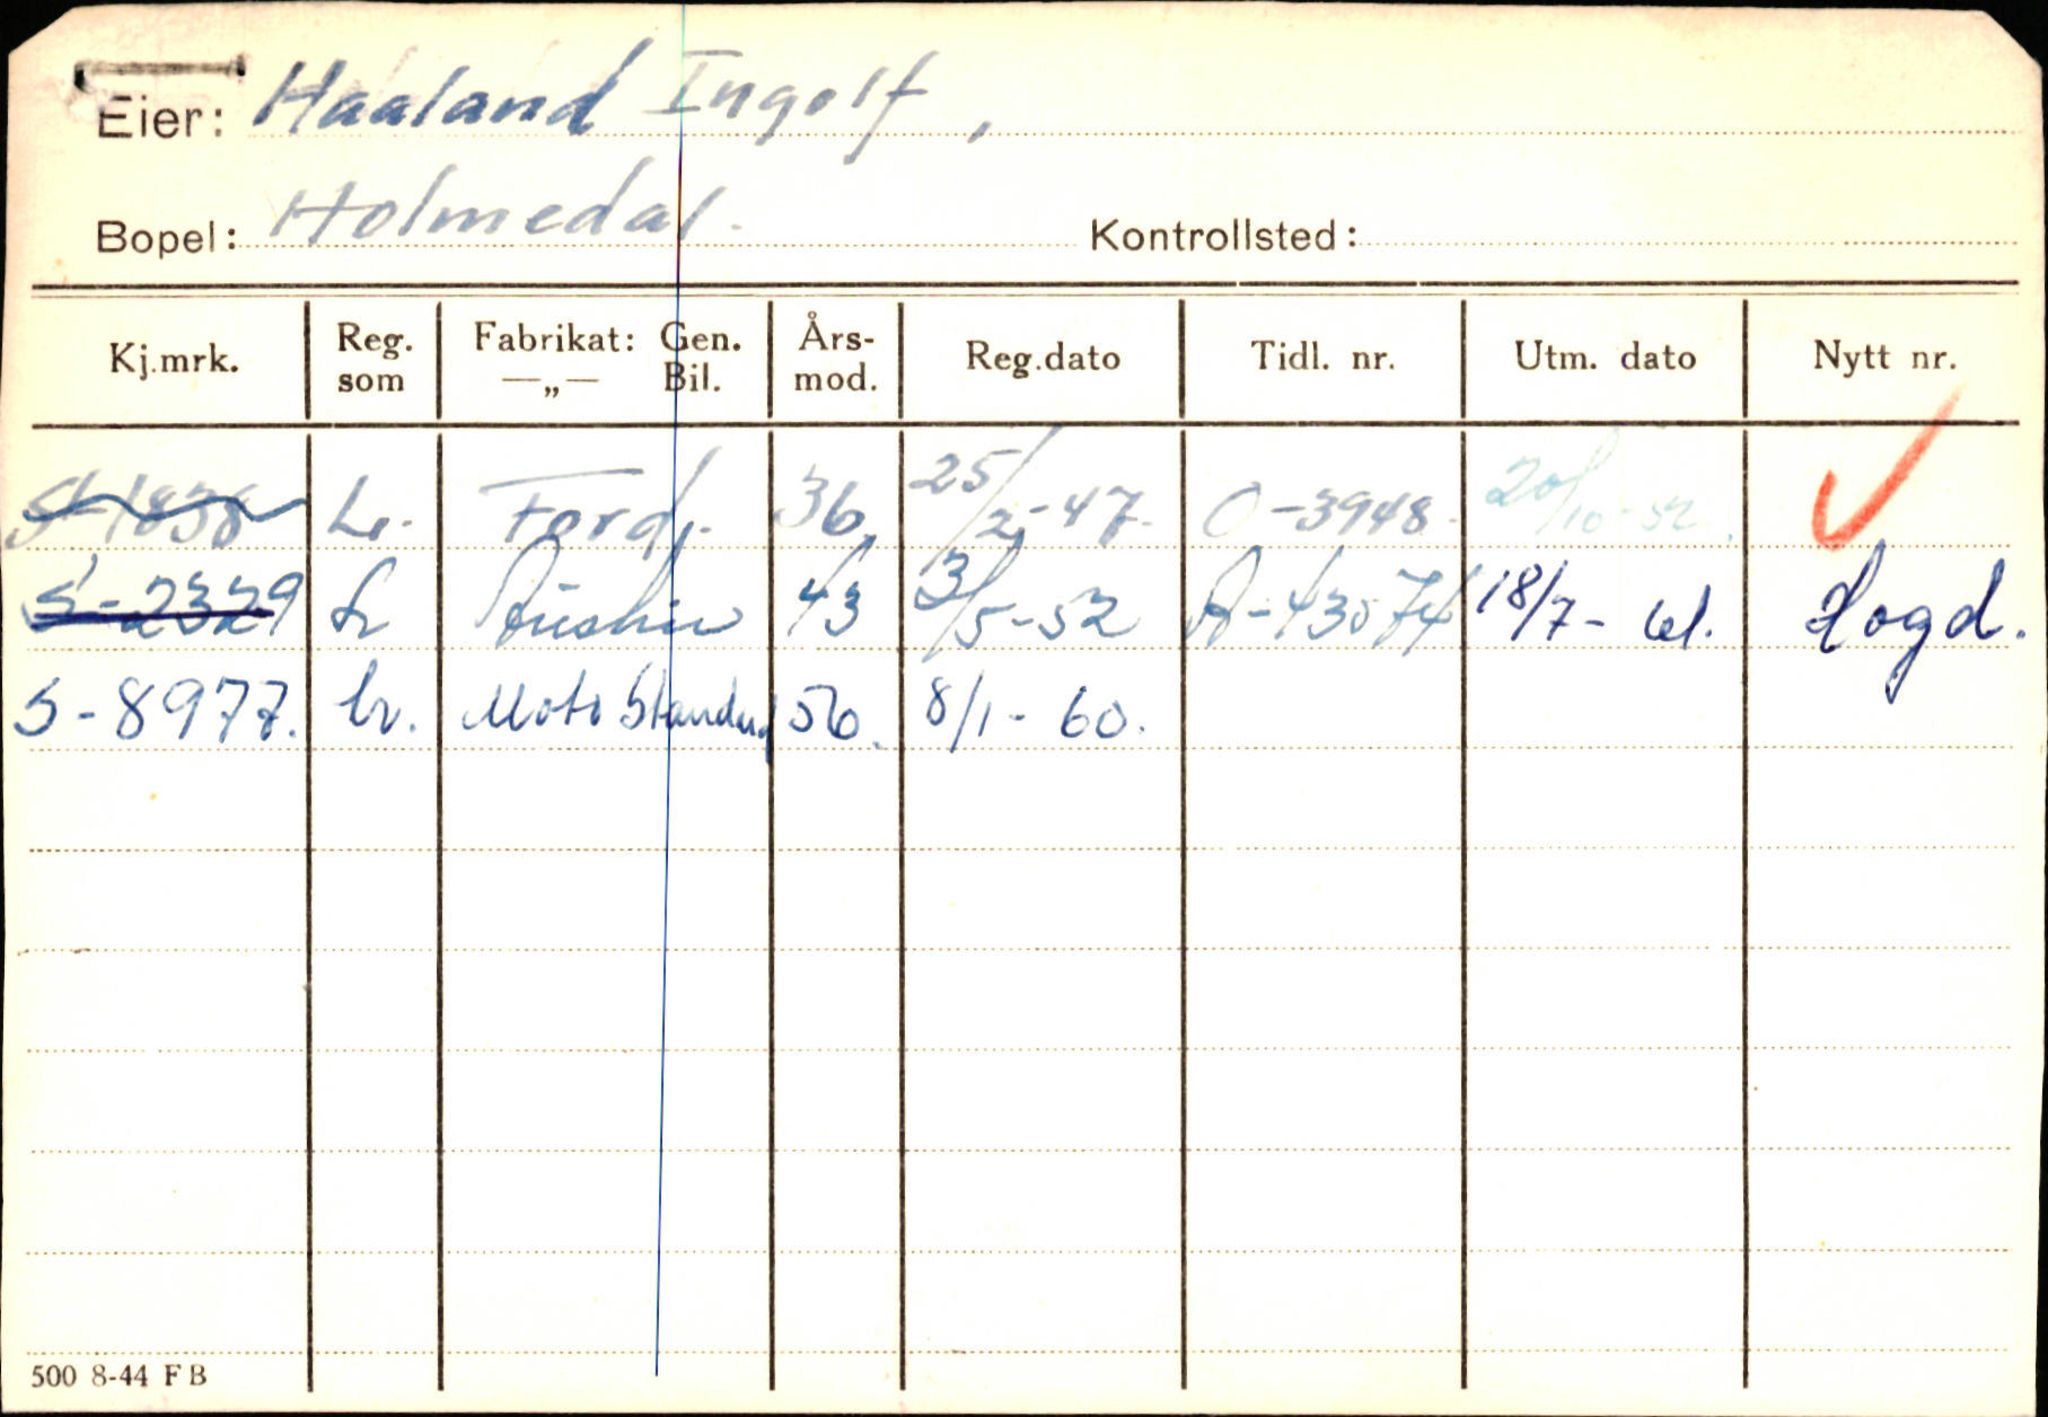 Eier: Haaland Ingolf,
Bopel: Holmedal. Kontrollsted:
Kj.mrk. Reg. som Fabrikat: Gen. —„— Bil. Års-mod. Reg.dato Tidl. nr. Utm. dato Nytt nr.
S-1838 Lv. Ford. 36 25/2-47. C-3948. 20/10-52.
S-2329 Lv Austin 43 3/5-52 A-43574 18/7-61. Hogd.
S-8977. Lv. Moto Standard 56. 8/1-60.
500 8-44 FB